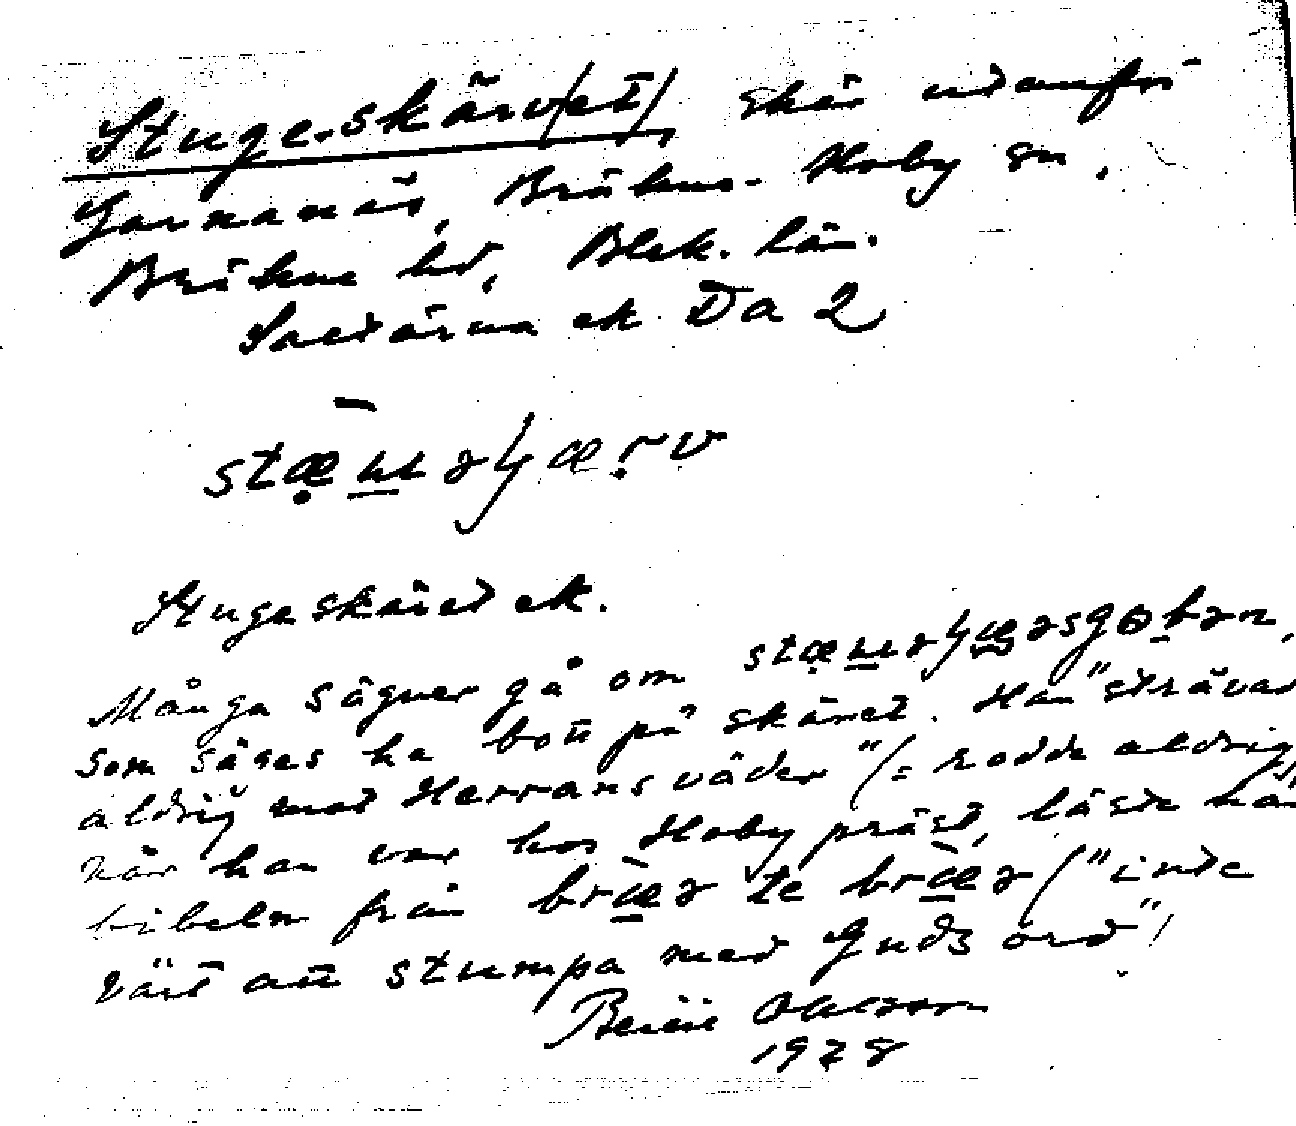 Stuge-skärv/et/, skär utanför
Garnanäs, Bräkne-Hoby sn,
Bräkne hd, Blek. län.
Saltärna ek Da 2
Stugeskäret ek.
Många sägner gå om
som säges ha bott på skäret. Han "strävat
aldrig mot Herrans väder" (= rodde aldrig)
när han var hos Hoby präst, läste
bibeln från bræ̱ə te bræ̱ə ("inte
värt att stumpa med Guds ord"!
Ohlsson
1928